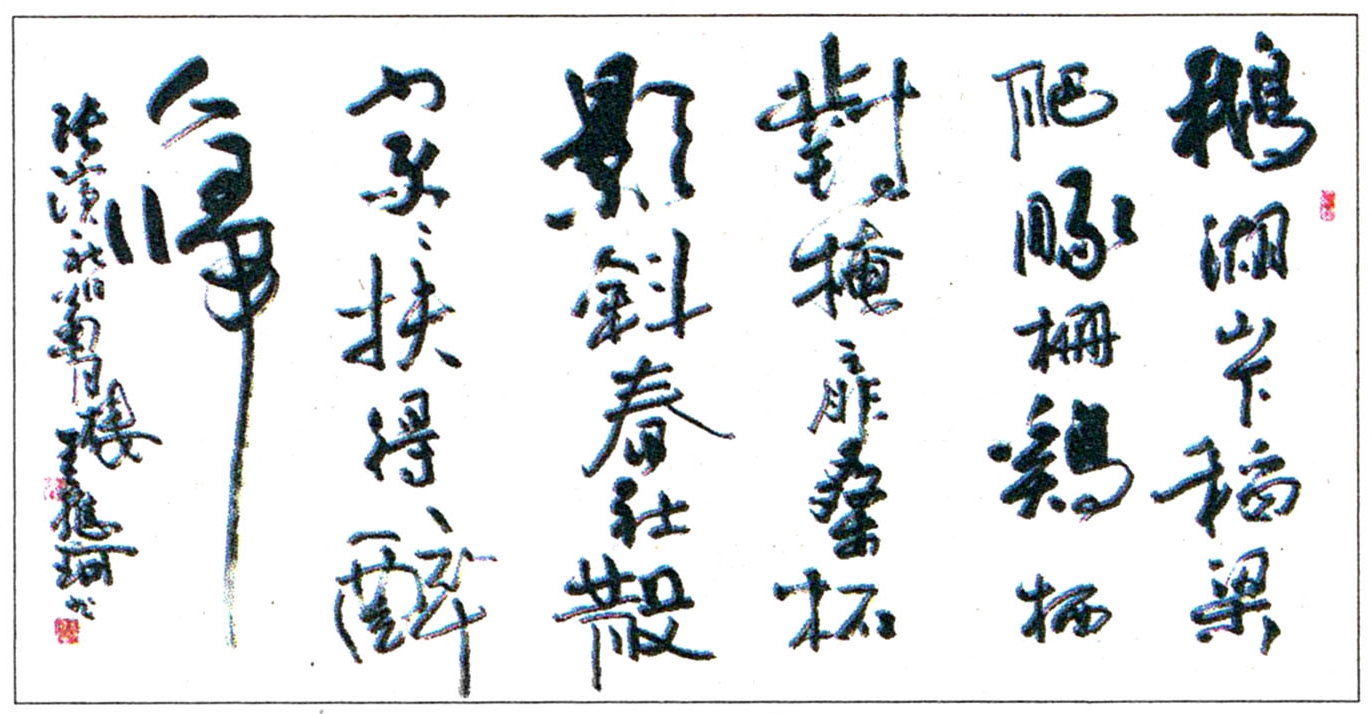 鵝湖山下稻粱
肥豚柵鷄栖
對掩扉桑柘
影斜春社散
家〻扶得醉
人歸
張演社日 月樓 王 珂书